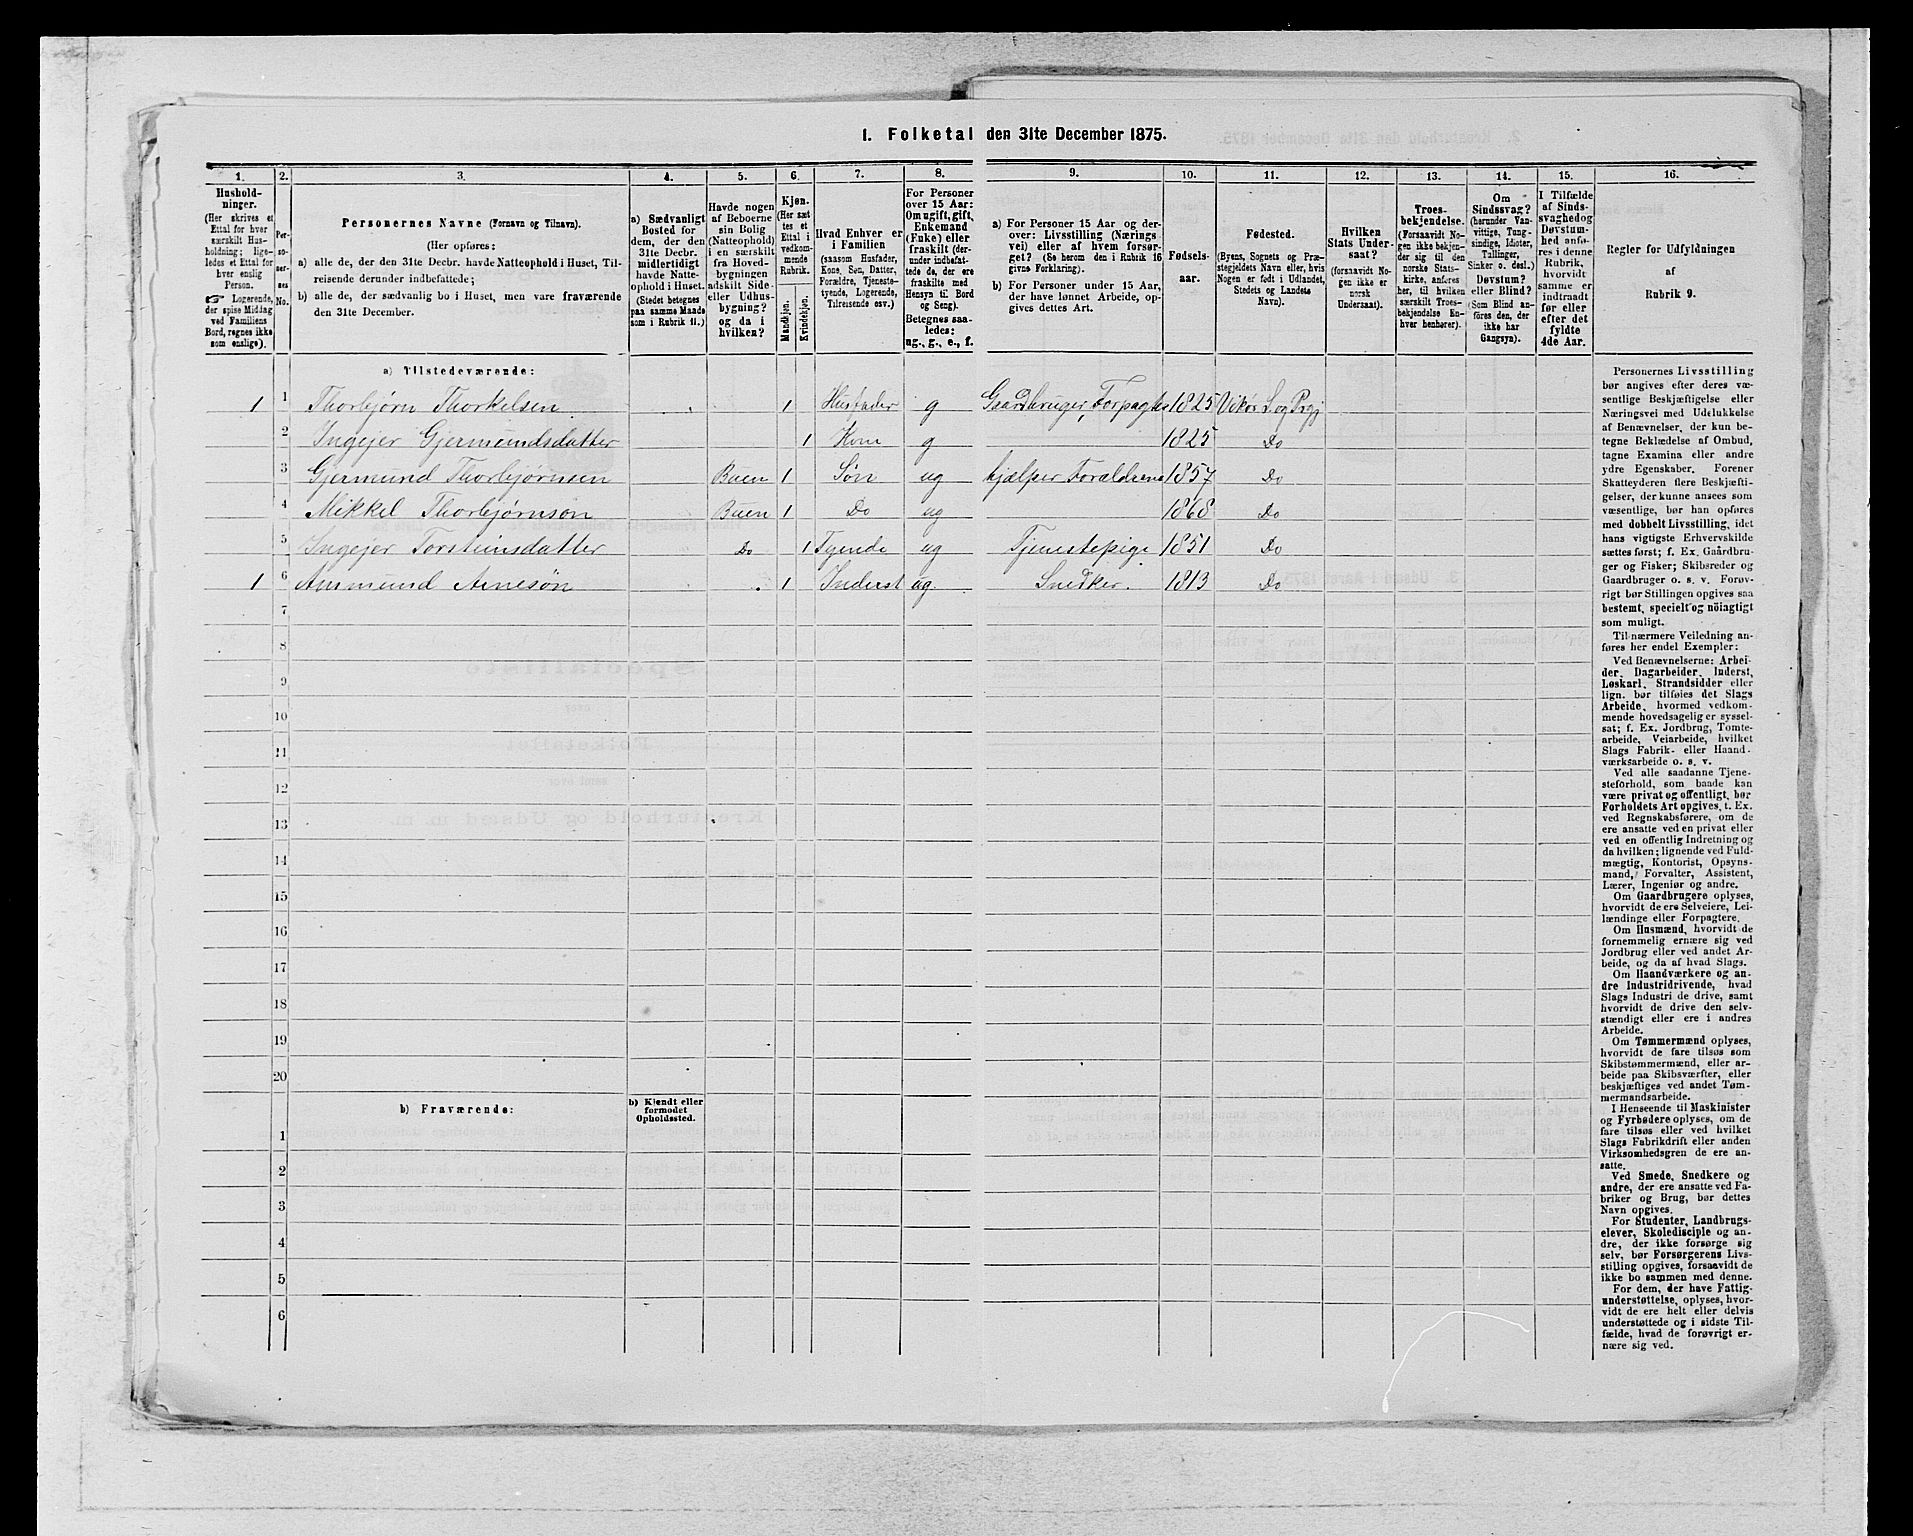 1. Folketal den 31te December 1875.
1. 2. 3. 4. 5. 6. 7. 8. 9. 10. 11. 12. 13. 14. 15. 16.
Hushold-
ninger.
(Her skrives et
Ettal for hver
særskilt Hus-
holdning; lige-
ledes et Ettal for
hver enslig
Person.
☞ Logerende,
der spise Middag
ved Familiens
Bord, regnes ikke
som enslige).
Per-
so-
ner-
nes
No.
Personernes Navne (Fornavn og Tilnavn).
(Her opføres:
a) alle de, der den 31te Decbr. havde Natteophold i Huset, Til-
reisende derunder indbefattede;
b) alle de, der sædvanlig bo i Huset, men vare fraværende
den 31te December.
a) Sædvanligt
Bosted for
dem, der den
31te Decbr.
midlertidigt
havde Natte-
ophold i Huset.
(Stedet betegnes
paa samme Maade
som i Rubrik 11.)
Havde nogen
af Beboerne
sin Bolig
(Natteophold)
i en særskilt
fra Hoved-
bygningen
adskilt Side-
eller Udhus-
bygning?
og da i
hvilken?
Kjøn.
(Her sæt-
tes et
Ettal i
vedkom-
mende
Rubrik.
Mandkjøn.
Kvindekjøn.
Hvad Enhver er
i Familien
(saasom Husfader,
Kone, Søn, Datter,
Forældre, Tjeneste-
tyende, Logerende,
Tilreisende osv.)
For Personer
over 15 Aar:
Om ugift, gift,
Enkemand
(Enke) eller
fraskilt (der-
under indbefat-
tede de, der ere
fraskilte med
Hensyn til Bord
og Seng).
Betegnes saa-
ledes:
ug., g., e., f.
a) For Personer 15 Aar og der-
over: Livsstilling (Nærings-
vei) eller af hvem forsør-
get? (Se herom den i Rubrik 16
givne Forklaring).
b) For Personer under 15 Aar,
der have lønnet Arbeide, op-
gives dettes Art.
Fødsels-
aar.
Fødested.
(Byens, Sognets og Præ-
stegjeldets Navn eller, hvis
Nogen er født i Udlandet,
Stedets og Landets
Navn).
Hvilken
Stats Under-
saat?
(forsaavidt No-
gen ikke er
norsk
Undersaat).
Troes-
bekjendelse.
(Forsaavidt No-
gen ikke bekjen-
der sig til den
norske Stats-
kirke, anføres
her, til hvilken
særskilt Troes-
bekjendelse En-
hver henhører).
Om
Sindssvag?
(herunder Van-
vittige, Tung-
sindige, Idioter,
Tullinger,
Sinker o. desl.)
Døvstum?
eller Blind?
(Som Blind an-
føres den, der
ikke har
Gangsyn).
I Tilfælde
af Sinds-
svaghed og
Døvstum-
hed anfø-
res i denne
Rubrik,
hvorvidt
samme er
indtraadt
før eller
efter det
fyldte
4de Aar.
Regler for Udfyldningen
af
Rubrik 9.
a) Tilstedeværende:
1 1 Thorbjørn Thorkelsen 1 Husfader g Gaardbruger, Forpagter 1825 Vikør S. og Prgj
2 Ingejer Gjermundsdatter 1 Kone g 1825 Do
3 Gjermund Thorbjørnsen Buen 1 Søn ug hjælper Forældrene 1857 Do
4 Mikkel Thorbjørnsøn Buen 1 Do ug 1868 Do
5 Ingejer Torsteinsdatter Do 1 Tyende ug Tjenestepige 1851 Do
1 6 Ammund Arnesøn 1 Inderst ug. Snedker. 1813 Do
7
8
9
10
11
12
13
14
15
16
17
18
19
20
b) Fraværende:
b) Kjendt eller
formodet
Opholdssted.
1
2
3
4
5
6
Personernes Livsstilling
bør angives efter deres væ-
sentlige Beskjæftigelse eller
Næringsvei med Udelukkelse
af Benævnelser, der kun be-
tegne Beklædelse af Ombud,
tagne Examina eller andre
ydre Egenskaber. Forener
Skatteyderen flere Beskjæfti-
gelser, der kunne ansees som
væsentlige, bør han opføres
med dobbelt Livsstilling, idet
hans vigtigste Erhvervskilde
sættes først; f. Ex. Gaardbru-
ger og Fisker; Skibsreder og
Gaardbruger o. s. v. Forøv-
rigt bør Stillingen opgives saa
bestemt, specielt og nöiagtigt
som muligt.
Til nærmere Veiledning an-
føres her endel Exempler:
Ved Benævnelserne: Arbei-
der, Dagarbeider, Inderst,
Løskarl, Strandsidder eller
lign. bør tilføies det Slags
Arbeide, hvormed vedkom-
mende hovedsagelig er syssel-
sat; f. Ex. Jordbrug, Tomte-
arbeide, Veiarbeide, hvilket
Slags Fabrik- eller Haand-
værksarbeide o. s. v.
Ved alle saadanne Tjene-
steforhold, som baade kan
være privat og offentligt, bør
Forholdets Art opgives, t. Ex.
ved Regnskabsførere, om de
ere ansatte ved en privat eller
ved en offentlig Indretning og
da hvilken; lignende ved Fuld-
mægtig, Kontorist, Opsyns-
mand, Forvalter, Assistent,
Lærer, Ingeniør og andre.
Om Gaardbrugere oplyses,
hvorvidt de ere Selveiere, Lei-
lændinge eller Forpagtere.
Om Husmænd, hvorvidt de
fornemmelig ernære sig ved
Jordbrug eller ved andet Ar-
beide, og da af hvad Slags.
Om Haandværkere og an-
dre Industridrivende, hvad
Slags Industri de drive, samt
hvorvidt de drive den selv-
stændigt eller ere i andres
Arbeide.
Om Tømmermænd oplyses,
hvorvidt de fare tilsøs som
Skibstømmermænd, eller ar-
beide paa Skibsværfter, eller
beskjæftiges ved andet Tøm-
mermandsarbeide.
I Henseende til Maskinister
og Fyrbødere oplyses, om de
fare tilsøs eller ved hvilket
Slags Fabrikdrift eller anden
Virksomhedsgren de ere an-
satte.
Ved Smede, Snedkere og
andre, der ere ansatte ved Fa-
briker og Brug, bør dettes
Navn opgives.
For Studenter, Landbrugs-
elever, Skoledisciple og an-
dre, der ikke forsørge sig
selv, bør Forsørgerens Livs-
stilling opgives, forsaavidt de
ikke bo sammen med denne.
For dem, der have Fattig-
understøttelse, oplyses, hvor-
vidt de ere helt eller delvis
understøttede og i sidste Til-
fælde, hvad de forøvrigt er-
nære sig ved.